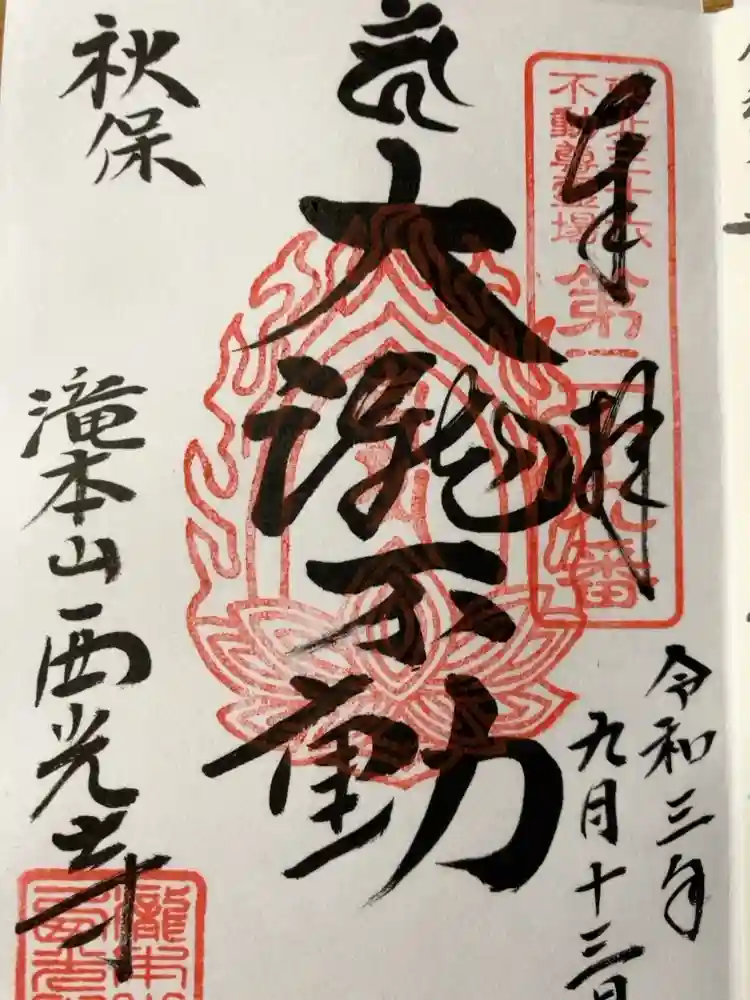 奉拝
東北三十六
不動尊霊場
令和三年
九月十三日
大瀧不動
秋保
滝本山西光寺